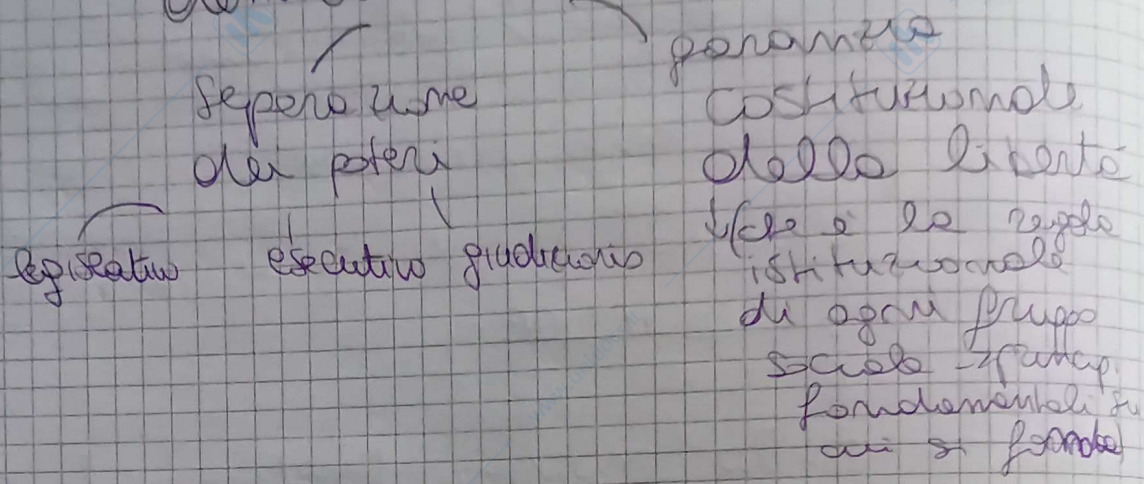 separazione
dei poteri
legislativo esecutivo giudiziario
garanzia
costituzionale
delle libertà
è la regola
istituzionale
di ogni gruppo
sociale → princip.
fondamentali su
cui si fonda